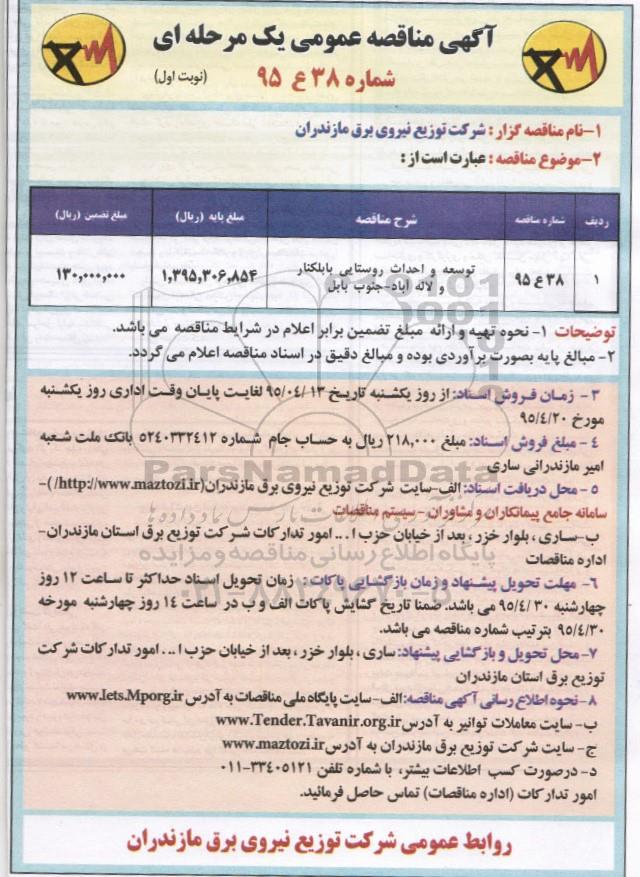 آگهی مناقصه عمومی یک مرحله ای
شماره ۳۸ ع ۹۵ (نوبت اول)
۱-نام مناقصه گزار: شرکت توزیع نیروی برق مازندران
۲-موضوع مناقصه: عبارت است از:
ردیف شماره مناقصه شرح مناقصه مبلغ پایه (ریال) مبلغ تضمین (ریال)
۱ ۳۸ ع ۹۵ توسعه و احداث روستایی بابلکنار و لاله آباد-جنوب بابل ۱,۳۹۵,۳۰۶,۸۵۴ ۱۳۰,۰۰۰,۰۰۰
توضیحات ۱- نحوه تهیه و ارائه مبلغ تضمین برابر اعلام در شرایط مناقصه می باشد.
۲- مبالغ پایه بصورت برآوردی بوده و مبالغ دقیق در اسناد مناقصه اعلام می گردد.
۳- زمان فروش اسناد: از روز یکشنبه تاریخ ۱۳ /۹۵/۰۴ لغایت پایان وقت اداری روز یکشنبه
مورخ ۹۵/۴/۲۰
۴- مبلغ فروش اسناد: مبلغ ۲۱۸,۰۰۰ ریال به حساب جام شماره ۵۲۴۰۳۳۲۴۱۲ بانک ملت شعبه
امیر مازندرانی ساری
۵- محل دریافت اسناد: الف-سایت شرکت توزیع نیروی برق مازندران(http://www.maztozi.ir/)-
سامانه جامع پیمانکاران و مشاوران - سیستم مناقصات
ب-ساری، بلوار خزر، بعد از خیابان حزب ا... امور تدارکات شرکت توزیع برق استان مازندران-
اداره مناقصات
۶- مهلت تحویل پیشنهاد و زمان بازگشایی پاکات: زمان تحویل اسناد حداکثر تا ساعت ۱۲ روز
چهارشنبه ۳۰ /۹۵/۴ می باشد. ضمنا تاریخ گشایش پاکات الف و ب در ساعت ۱۴ روز چهارشنبه مورخه
۹۵/۴/۳۰ بترتیب شماره مناقصه می باشد.
۷- محل تحویل و بازگشایی پیشنهاد: ساری، بلوار خزر، بعد از خیابان حزب ا... امور تدارکات شرکت
توزیع برق استان مازندران
۸-نحوه اطلاع رسانی آگهی مناقصه: الف-سایت پایگاه ملی مناقصات به آدرس www.Iets.Mporg.ir
ب- سایت معاملات توانیر به آدرس www.Tender.Tavanir.org.ir
ج- سایت شرکت توزیع برق مازندران به آدرس www.maztozi.ir
د- درصورت کسب اطلاعات بیشتر، با شماره تلفن ۳۳۴۰۵۱۲۱-۰۱۱
امور تدارکات (اداره مناقصات) تماس حاصل فرمائید.
روابط عمومی شرکت توزیع نیروی برق مازندران
ParsNamadData
پایگاه اطلاع رسانی مناقصه و مزایده